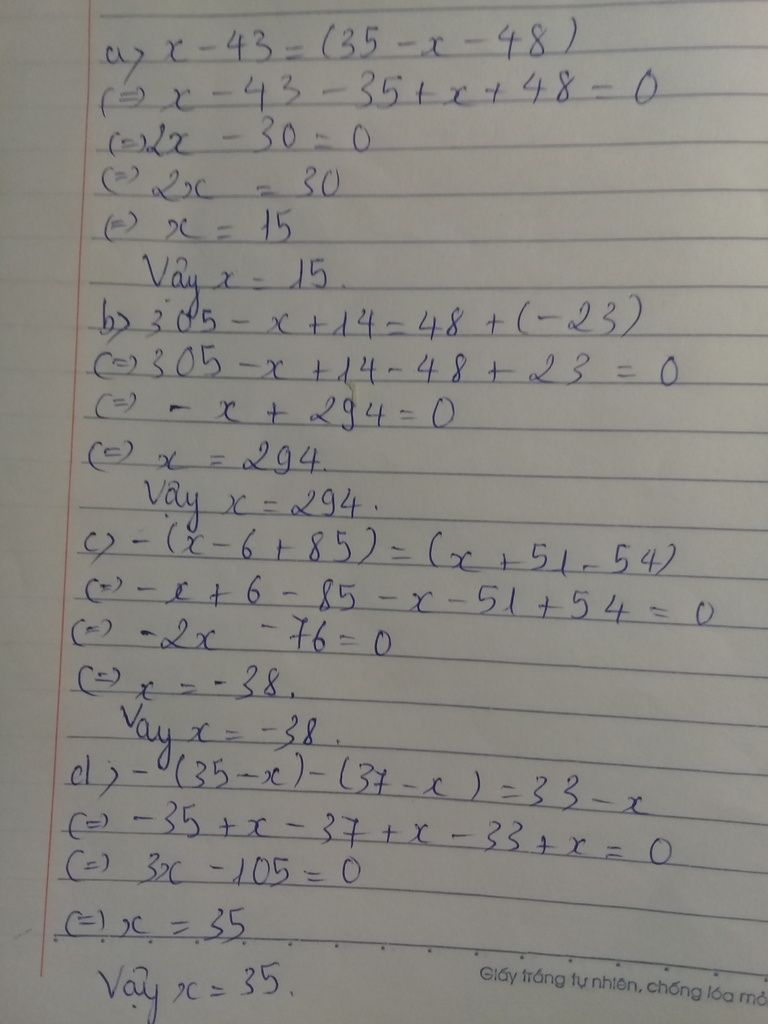 a) x - 43 = (35 - x - 48)
(=) x - 43 - 35 + x + 48 = 0
(=) 2x - 30 = 0
(=) 2x = 30
(=) x = 15
Vậy x = 15.
b) 305 - x + 14 = 48 + (-23)
(=) 305 - x + 14 - 48 + 23 = 0
(=) - x + 294 = 0
(=) x = 294.
Vậy x = 294.
c) - (x - 6 + 85) = (x + 51 - 54)
(=) - x + 6 - 85 - x - 51 + 54 = 0
(=) -2x - 76 = 0
(=) x = -38.
Vay x = -38.
d) - (35 - x) - (37 - x) = 33 - x
(=) -35 + x - 37 + x - 33 + x = 0
(=) 3x - 105 = 0
(=) x = 35
Vậy x = 35.
Giấy trắng tự nhiên, chống lóa mỏ